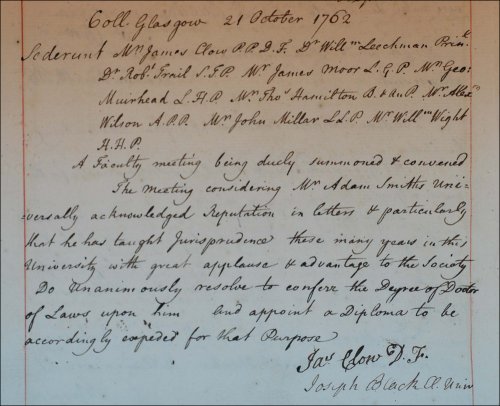 Coll. Glasgow 21 October 1762
Sederunt Mr James Clow P.P.D.F. Dr Willm Leechman Prinl.
Dr Robt Trail S.T.P. Mr James Moor L.G.P. Mr Geo:
Muirhead L.H.P. Mr Thos Hamilton B. & An.P. Mr Alexr
Wilson A.P.P. Mr John Millar L.L.P. Mr Willm Wight
H.H.P.
A Faculty meeting being duely summoned & convened
The Meeting considering Mr Adam Smiths Uni-
-versally acknowledged Reputation in letters & particularly
that he has taught Jurisprudence these many years in this
University with great applause & advantage to the Society
Do Unanimously resolve to conferr the Degree of Doctor
of Laws upon him and appoint a Diploma to be
accordingly expeded for that Purpose
Jas Clow D.F.
Joseph Black Cl. Univ